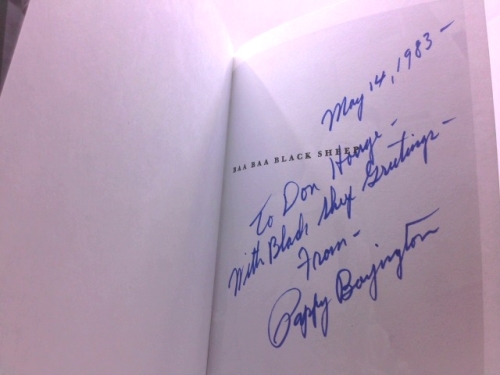 May 14, 1983 -
BAA BAA BLACK SHEEP
To Don Houge -
With Black Shep Greetings -
From -
Pappy Boyington